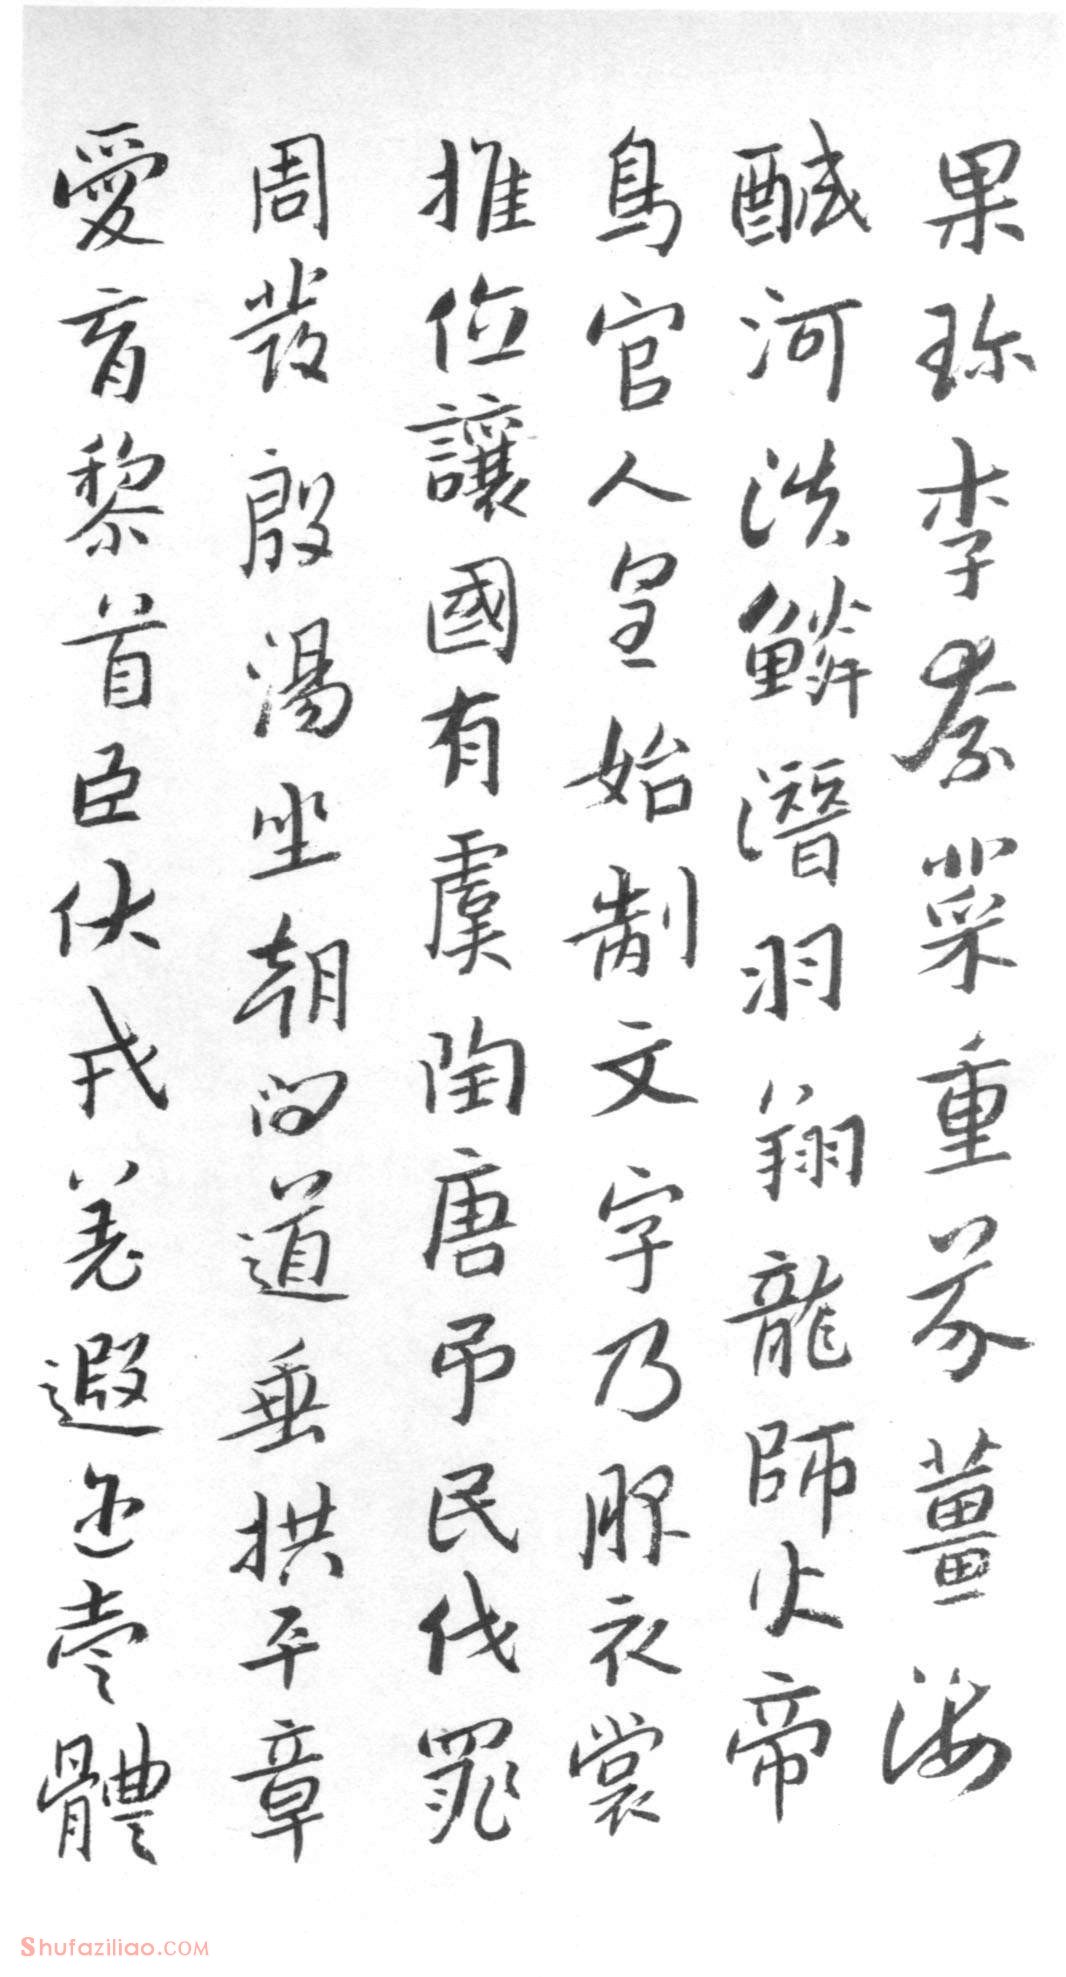 果珍李柰菜重芥薑海
醎河淡鱗潛羽翔龍師火帝
鳥官人皇始制文字乃服衣裳
推位讓國有虞陶唐弔民伐罪
周發殷湯坐朝問道垂拱平章
愛育黎首臣伏戎羌遐迩壹體
Shufaziliao.COM